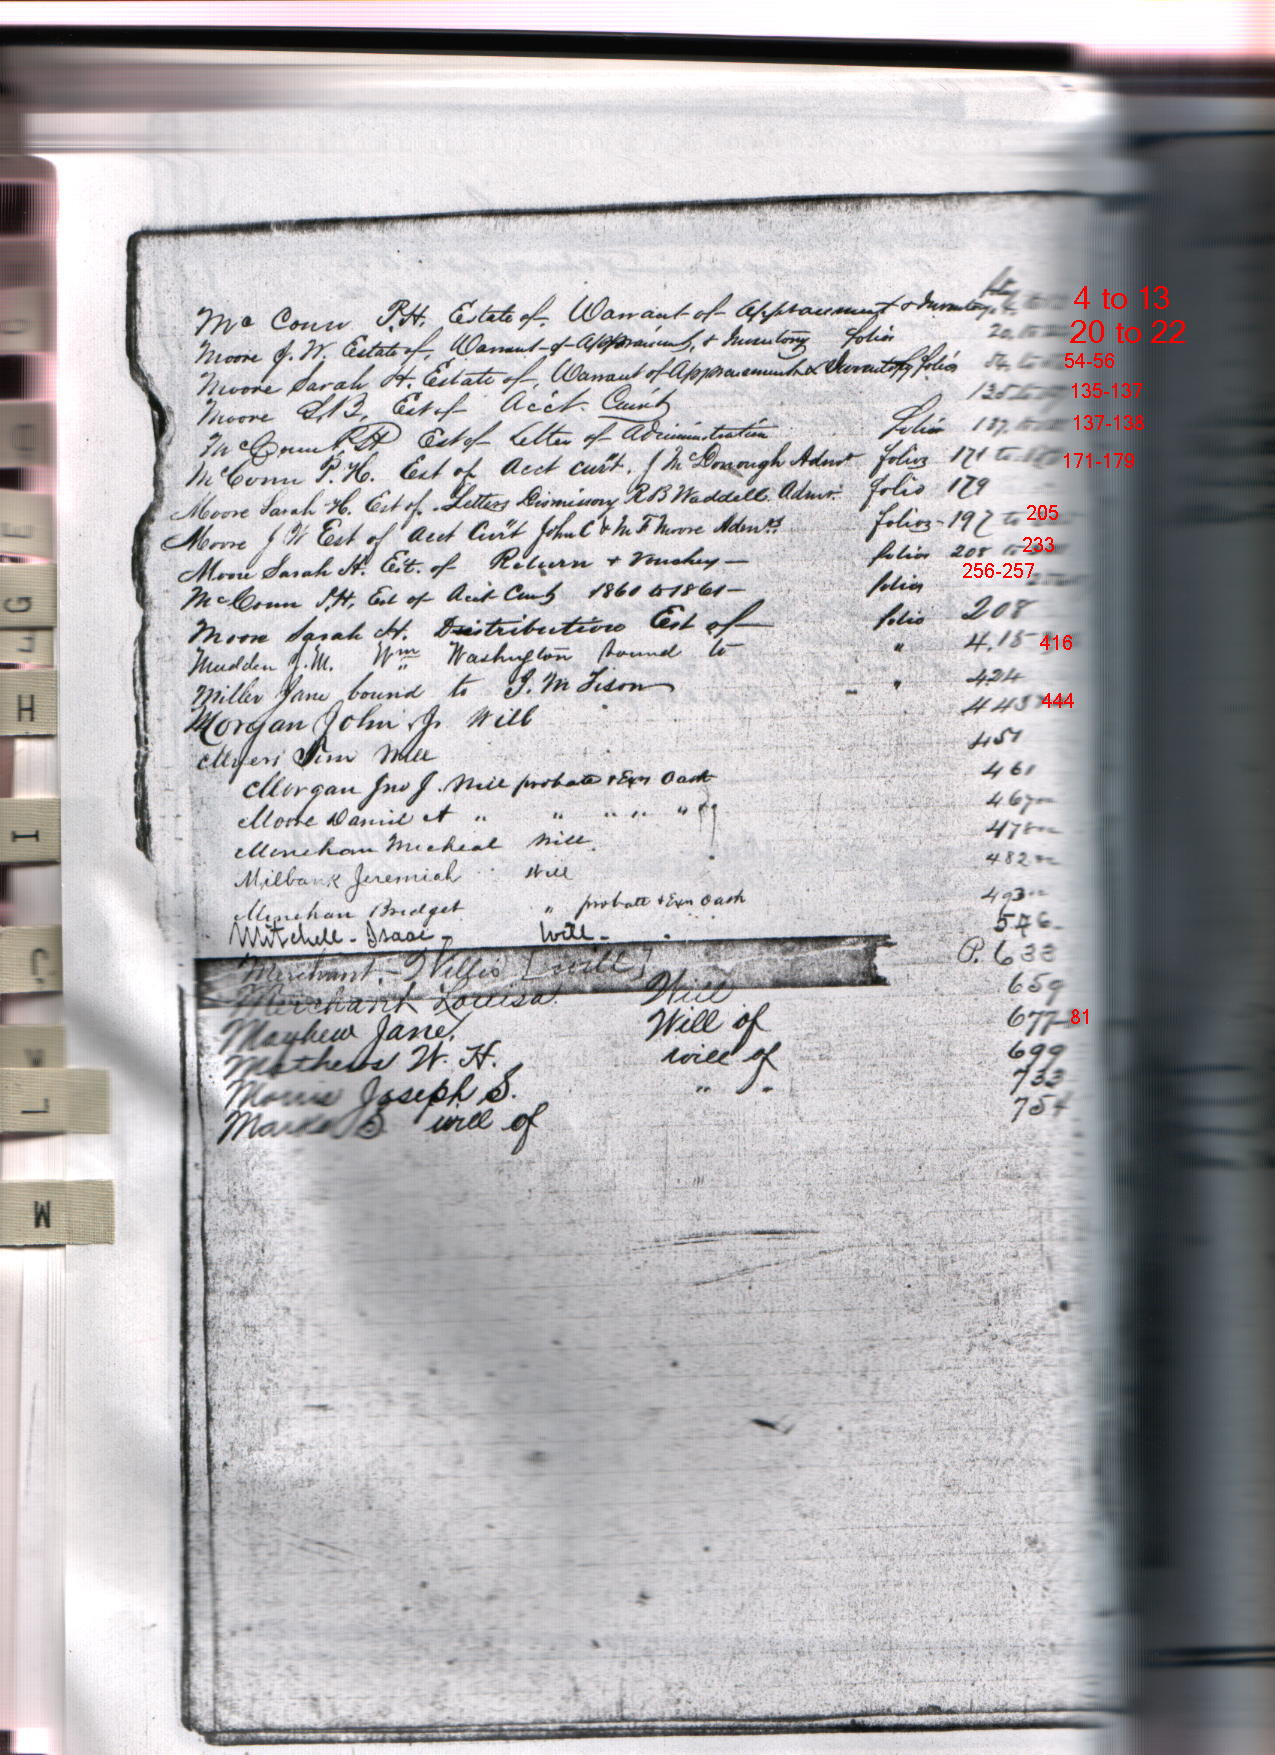 Mc Conn P.H. Estate of, Warrant of Appraisement & Inventory, 4 to 13
Moore J. W. Estate of, Warrant of Appraisement, & Inventory folios 20 to 22
Moore Sarah H. Estate of, Warrant of Appraisement & Inventory folios 54-56
Moore S.B, Est of Acct. Currt 135-137
McConn P.H Est of Letter of Administration folios 137 137-138
McConn P. H. Est of Acct curt. J McDonough Admr folios 171 to 171-179
Moore Sarah H. Est of Letters Dismissory R B Waddell Admr. folio 179
Moore J W Est of Acct Curt John C & M F Moore Admrs folios 197 to 205
Moore Sarah H. Est. of Return & vouchers folios 208 to 233
McConn P.H. Est of Acct Curt 1860 to 1861 folios 256-257
Moore Sarah H. Distribution Est of folio 208
Madden J.M. Wm Washington bound to " 415 416
Miller Jane bound to J. M Tison " 424
Morgan John J. Will 443 444
Myers Tim Will 451
Morgan Jno J. Will probate & Exrs Oath 461
Moore Daniel A " " " " " 467
Minehan Micheal Will. 478
Milbank Jeremiah Will 482
Minehan Bridget " probate & Exrs Oath 493
Mitchell - Isaac - Will - 546
Merchant, - Willis [will] P. 633
Merchant Louisa Will 659
Mayhew Jane, Will of 677-81
Mathews W. H. will of 699
Morris Joseph S. " " 733
Marks S will of 754
O
E
G
H
I
J
L
M